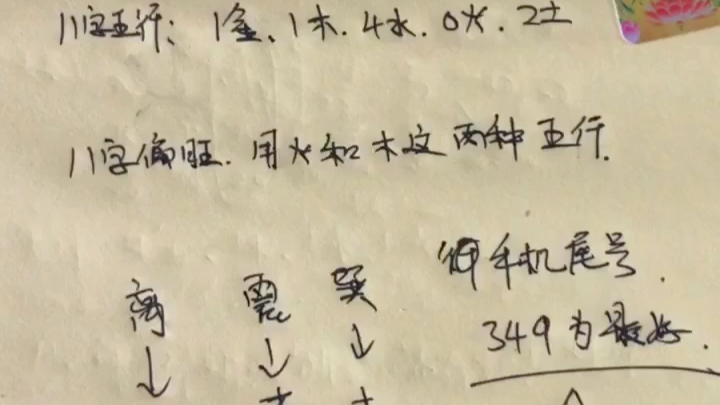 八字五行: 1金、1木、4水、0火、2土
八字偏旺、用火和木这两种五行.
你手机尾号.
349为最好.
离 震 巽
↓ ↓ ↓